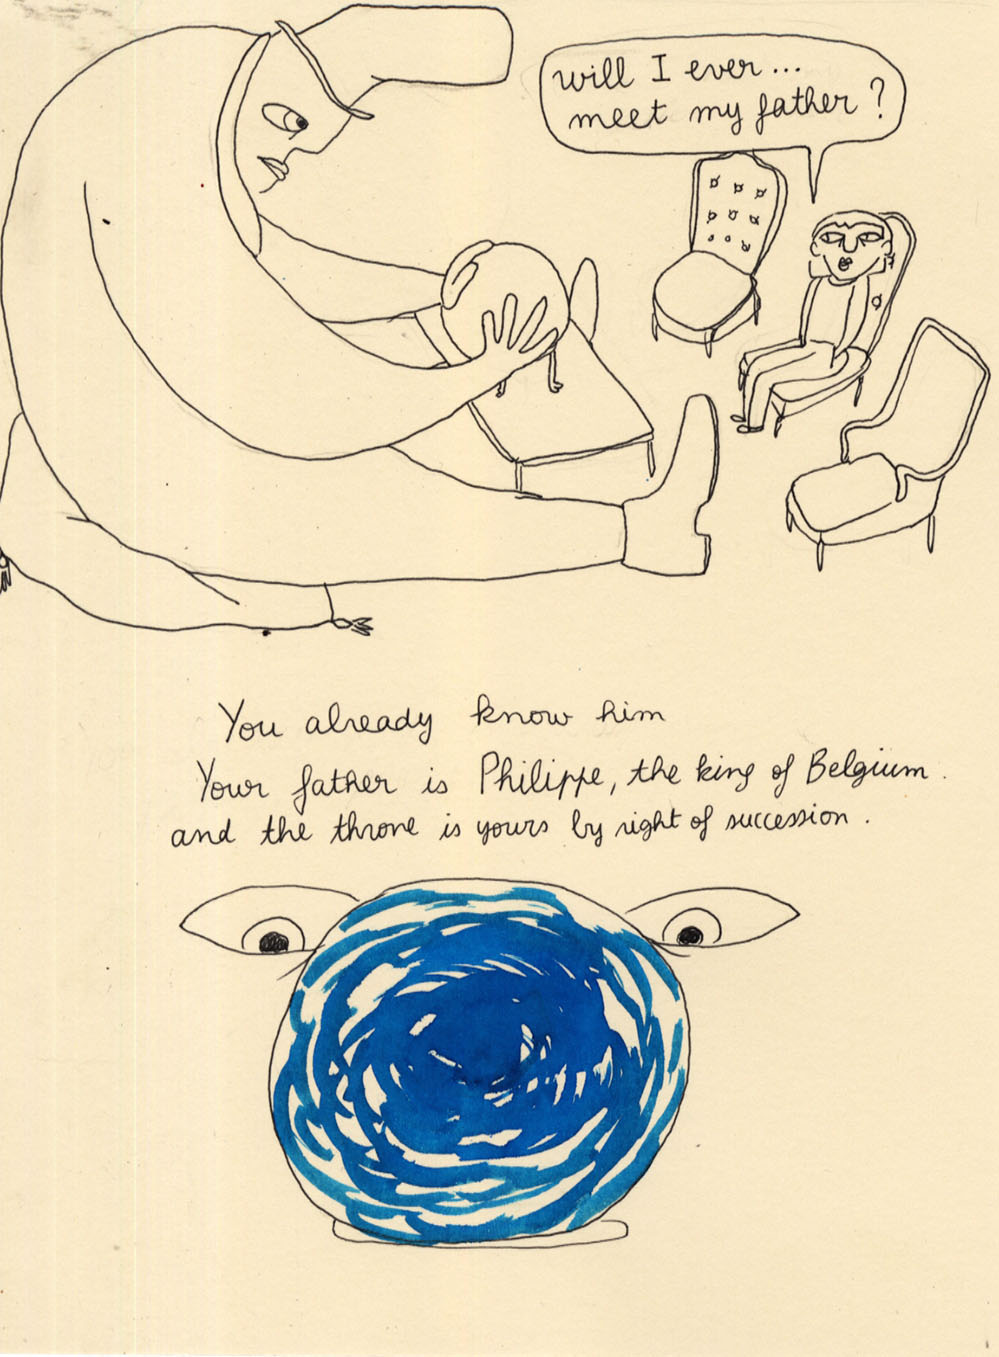 will I ever...
meet my father ?
You already know him
Your father is Philippe, the king of Belgium.
and the throne is yours by right of succession.